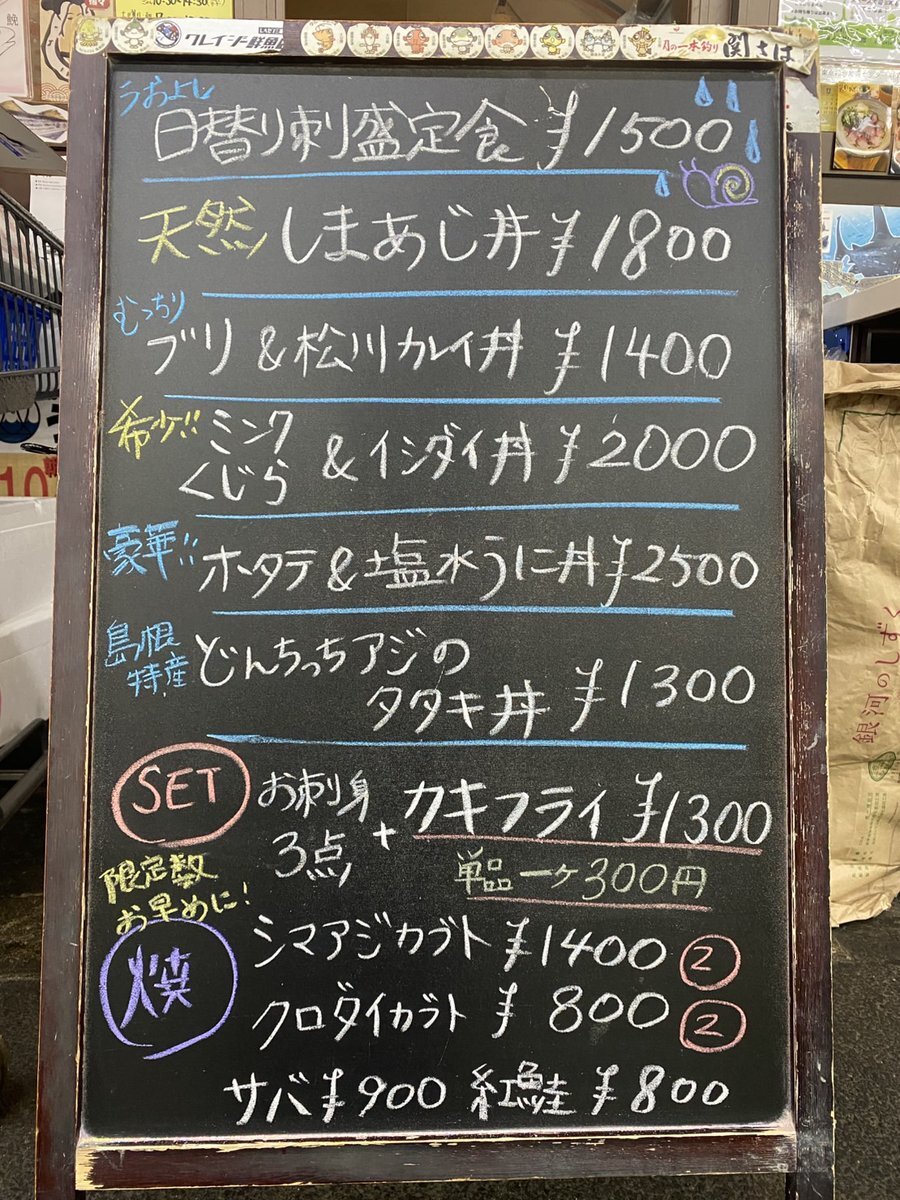 クレイジー鮮魚
月の一本釣り 関さば
うおよし
日替り刺盛定食 ¥1500
天然 しまあじ丼 ¥1800
むっちり
ブリ&松川カレイ丼 ¥1400
希少!! ミンク
くじら &イシダイ丼 ¥2000
豪華!! ホタテ&塩水うに丼 ¥2500
島根
特産 どんちっちアジの
タタキ丼 ¥1300
SET お刺身
3点 + カキフライ ¥1300
単品一ケ300円
限定数
お早めに!
焼 シマアジカブト ¥1400 ②
クロダイカブト ¥800 ②
サバ¥900 紅鮭 ¥800
銀河のしずく